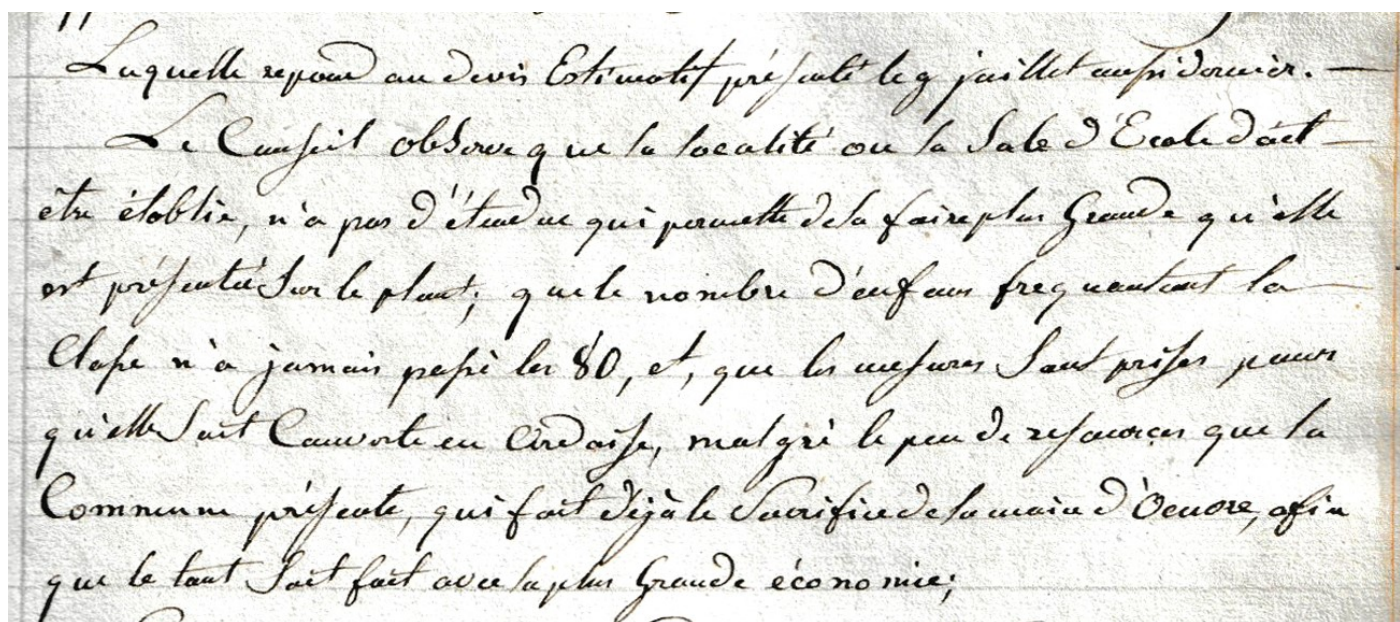 Laquelle repond au devis Estimatif présenté le 9 juillet aussi dernier. —
Le Conseil observe que la localité ou la Sale d'Ecole doit —
être établie, n'a pas d'étendue qui permette de la faire plus Grande qu'elle
est présentée Sur le plant; que le nombre d'enfans frequentant la
Classe n'a jamais passé les 80, et, que les mesures Sont prises pour
qu'elle Soit Couverte en Ardoise, malgré le peu de ressources que la
Commune présente, qui fait déjà le Sacrifice de la main d'Oeuvre, afin
que le tout Soit fait avec la plus Grande économie;